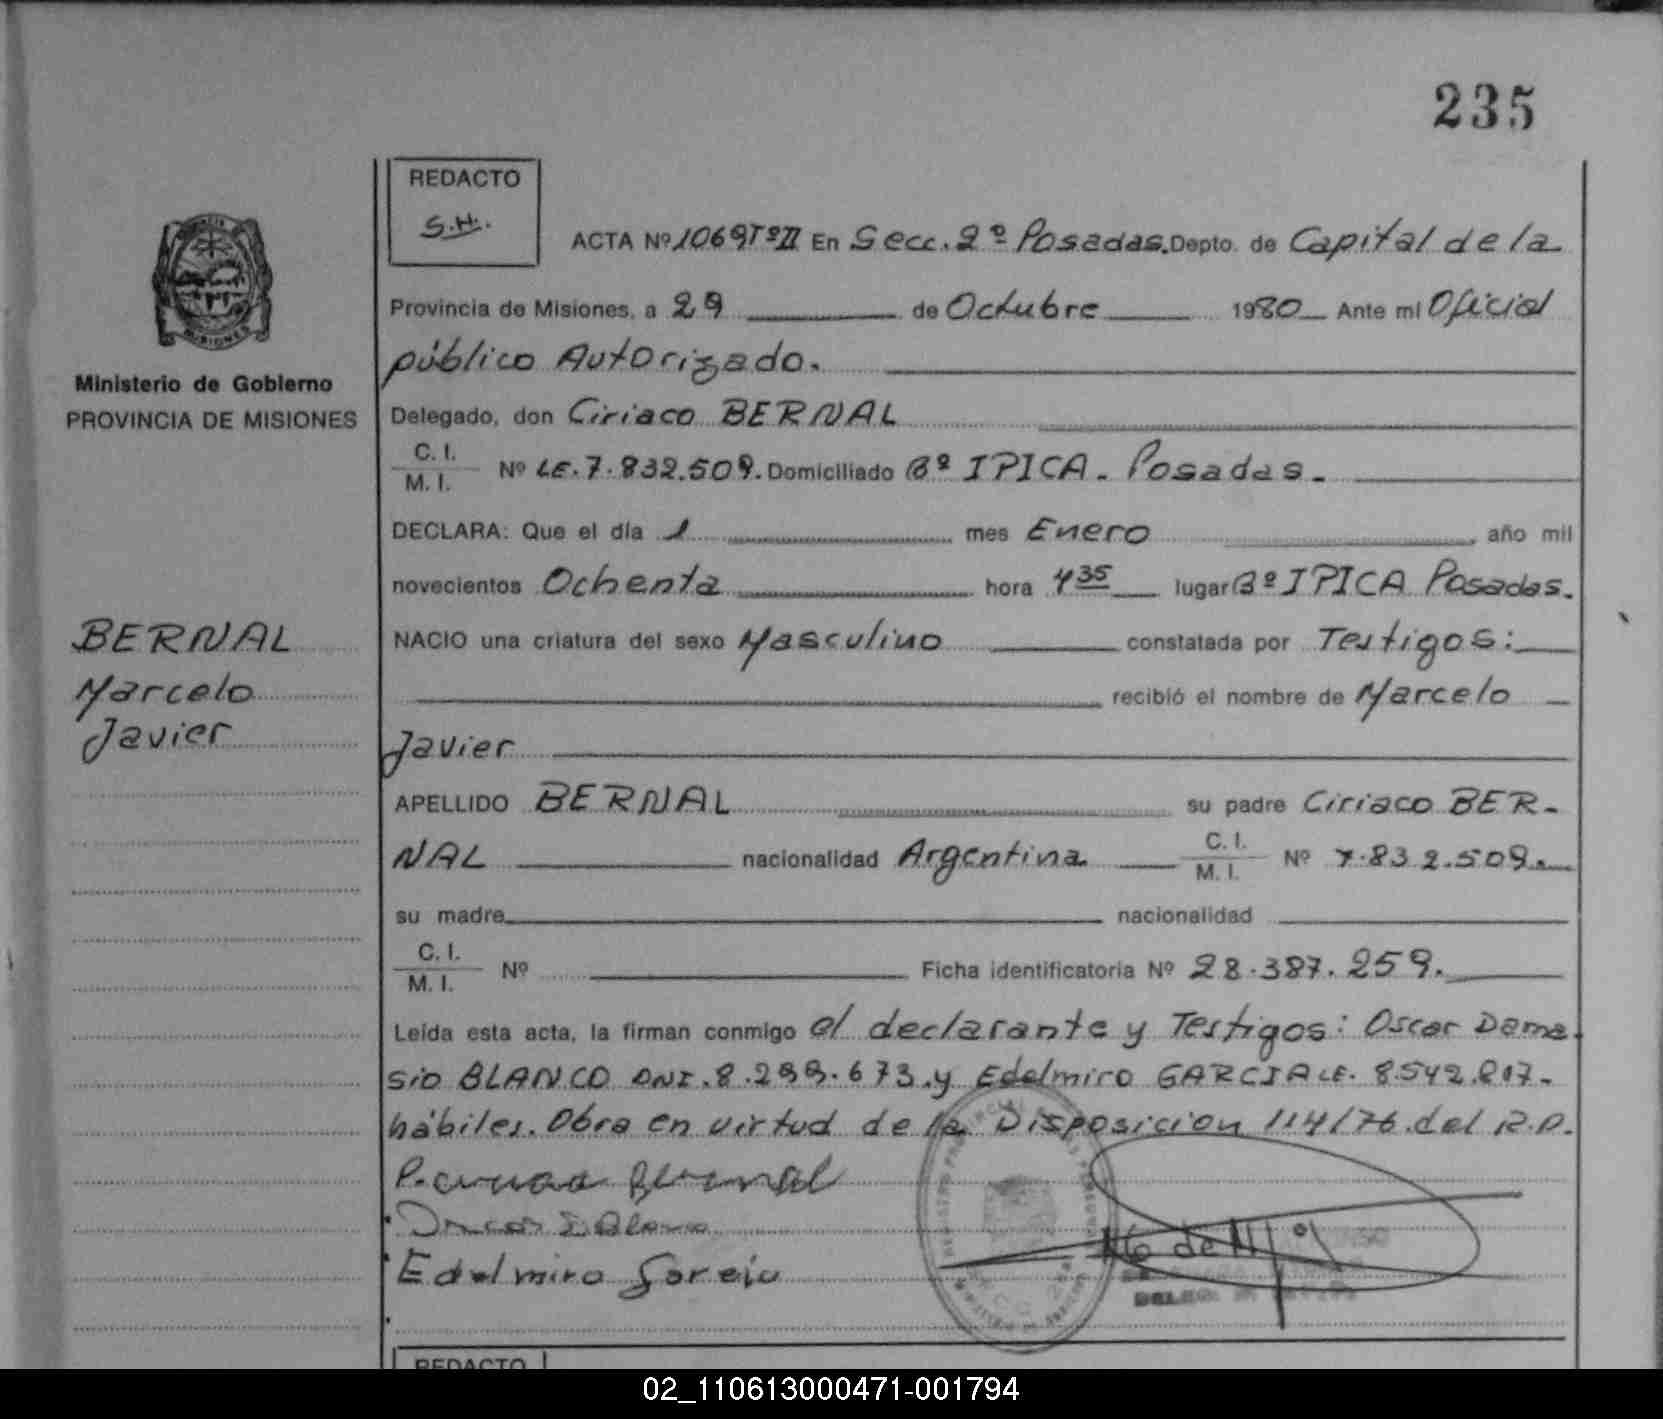 235
REDACTO
S.H.
ACTA Nº 1069 Tº II En Secc. 2º Posadas. Depto. de Capital de la
Provincia de Misiones, a 29 de Octubre 1980 Ante mi Oficial
público Autorizado.
Ministerio de Gobierno
PROVINCIA DE MISIONES
Delegado, don Ciriaco BERNAL
C. I.
M. I. Nº LE. 7.832.509. Domiciliado Bº IPICA. Posadas.
DECLARA: Que el día 1 mes Enero año mil
novecientos Ochenta hora 4 35 lugar Bº IPICA Posadas.
BERNAL
Marcelo
Javier
NACIO una criatura del sexo Masculino constatada por Testigos:
recibió el nombre de Marcelo
Javier
APELLIDO BERNAL su padre Ciriaco BER-
NAL nacionalidad Argentina C. I.
M. I. Nº 7.832.509.
su madre nacionalidad
C. I.
M. I. Nº Ficha identificatoria Nº 28.387.259.
Leída esta acta, la firman conmigo el declarante y Testigos: Oscar Dama
sio BLANCO DNI. 8.299.673. y Edelmiro GARCIA LE. 8542.817.
hábiles. Obra en virtud de la Disposicion 114/76. del R.P.
Bernal
Edelmiro Garcia
REDACTO
02_110613000471-001794